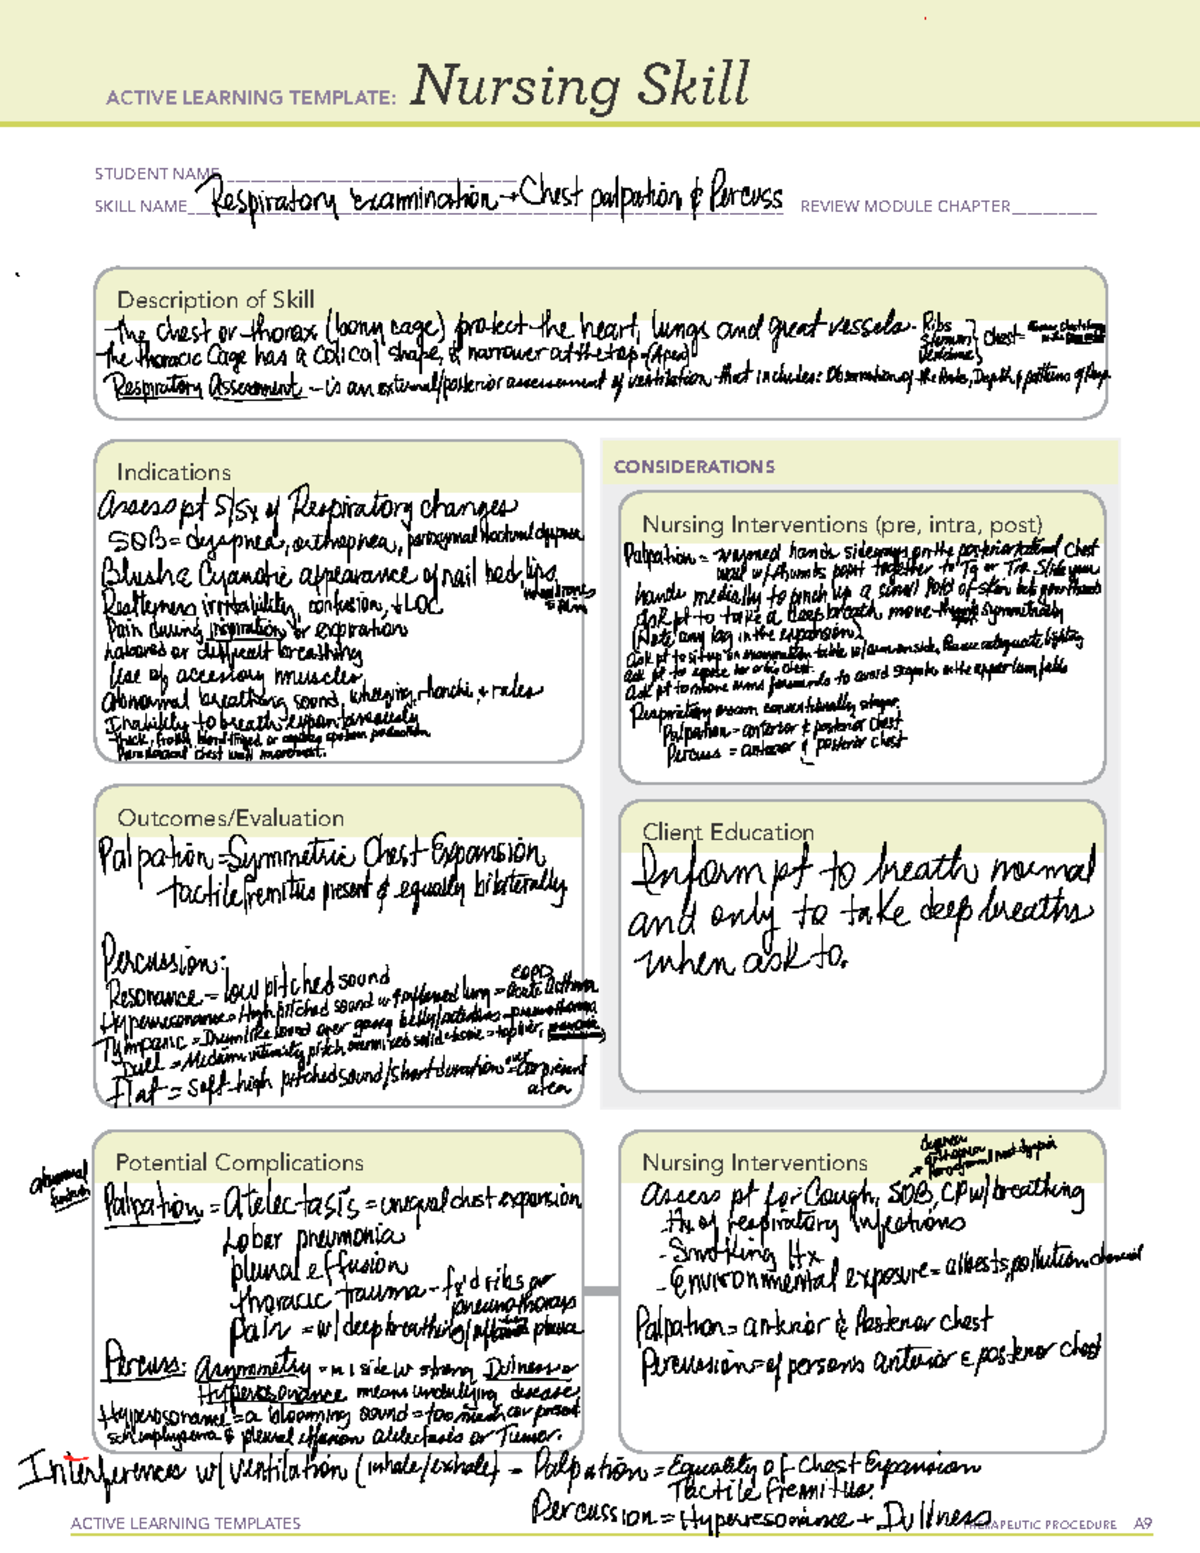 ACTIVE LEARNING TEMPLATE: Nursing Skill
STUDENT NAME
SKILL NAME Respiratory examination → Chest palpation & Percuss REVIEW MODULE CHAPTER
Description of Skill
the chest or thorax (bony cage) protect the heart, lungs and great vessels. Ribs
Sternum
Chest=
the thoracic Cage has a Colical shape, & narrower at the top (Apex)
Respiratory Assessment - is an external/posterior assessment of ventilation that includes: Observation of the Rate, Depth & patterns of
Indications
Assess pt S/Sx of Respiratory changes
SOB = dyspnea, orthopnea, paroxymal Nocturnal dyspnea
Blush & Cyanotic appearance of nail bed, lips,
irritability, confusion, ↓LOC
Pain during inspiration or expiration
labored or difficult breathing
Use of accessory muscles
Abnormal breathing sound, wheezing, rhonchi, + rales
to breath
thick, frothy,
chest wall movement.
CONSIDERATIONS
Nursing Interventions (pre, intra, post)
Palpation = warmed hands sideways on the posteriorlateral Chest
wall w/ thumbs point together to T9 or T10. Slide your
hands medially to pinch up a small fold of skin
ask pt to take a deep breath, move symmetrically
(Note any lag in the expansion)
ask pt to
ask pt to
Respiratory
Palpation - anterior & posterior chest
Percuss = anterior & posterior chest
Outcomes/Evaluation
Palpation = Symmetric Chest Expansion
tactile fremitus present & equally bilaterally
Percussion:
Resonance - low pitched sound
COPD
Hyperresonance = High pitched sound = Acute Asthma
Tympanic = Drum like sound over
Dull = Medium intensity pitch
Flat = Soft high pitched sound/short duration
area
Client Education
Inform pt to breath normal
and only to take deep breaths
when ask to.
Potential Complications
abnormal
Palpation = Atelectasis = unequal chest expansion
Lobar pneumonia
plural effusion
thoracic trauma - fx'd ribs or
pneumothorax
Pain = w/ deep breathing/
Percuss: Asymmetry = 1 side w strong Dullness or
Hyperesonance means underlying disease
Hyperesonance = a blooming sound = too much air present
pleural effusion atelectasis or Tumor.
Nursing Interventions
dyspnea
orthopnea
Assess pt for Cough, SOB, CP w/ breathing
- Hx of respiratory Infections
- Smoking Hx
- Environmental exposure = pollution, chemical
Palpation = anterior & Posterior chest
Percussion = of persons anterior & posterior chest
Interferences w/ ventilation (inhale/exhale) - Palpation = Equality of Chest Expansion
Tactile fremitus.
Percussion = Hyperresonance + Dullness
ACTIVE LEARNING TEMPLATES
THERAPEUTIC PROCEDURE A9